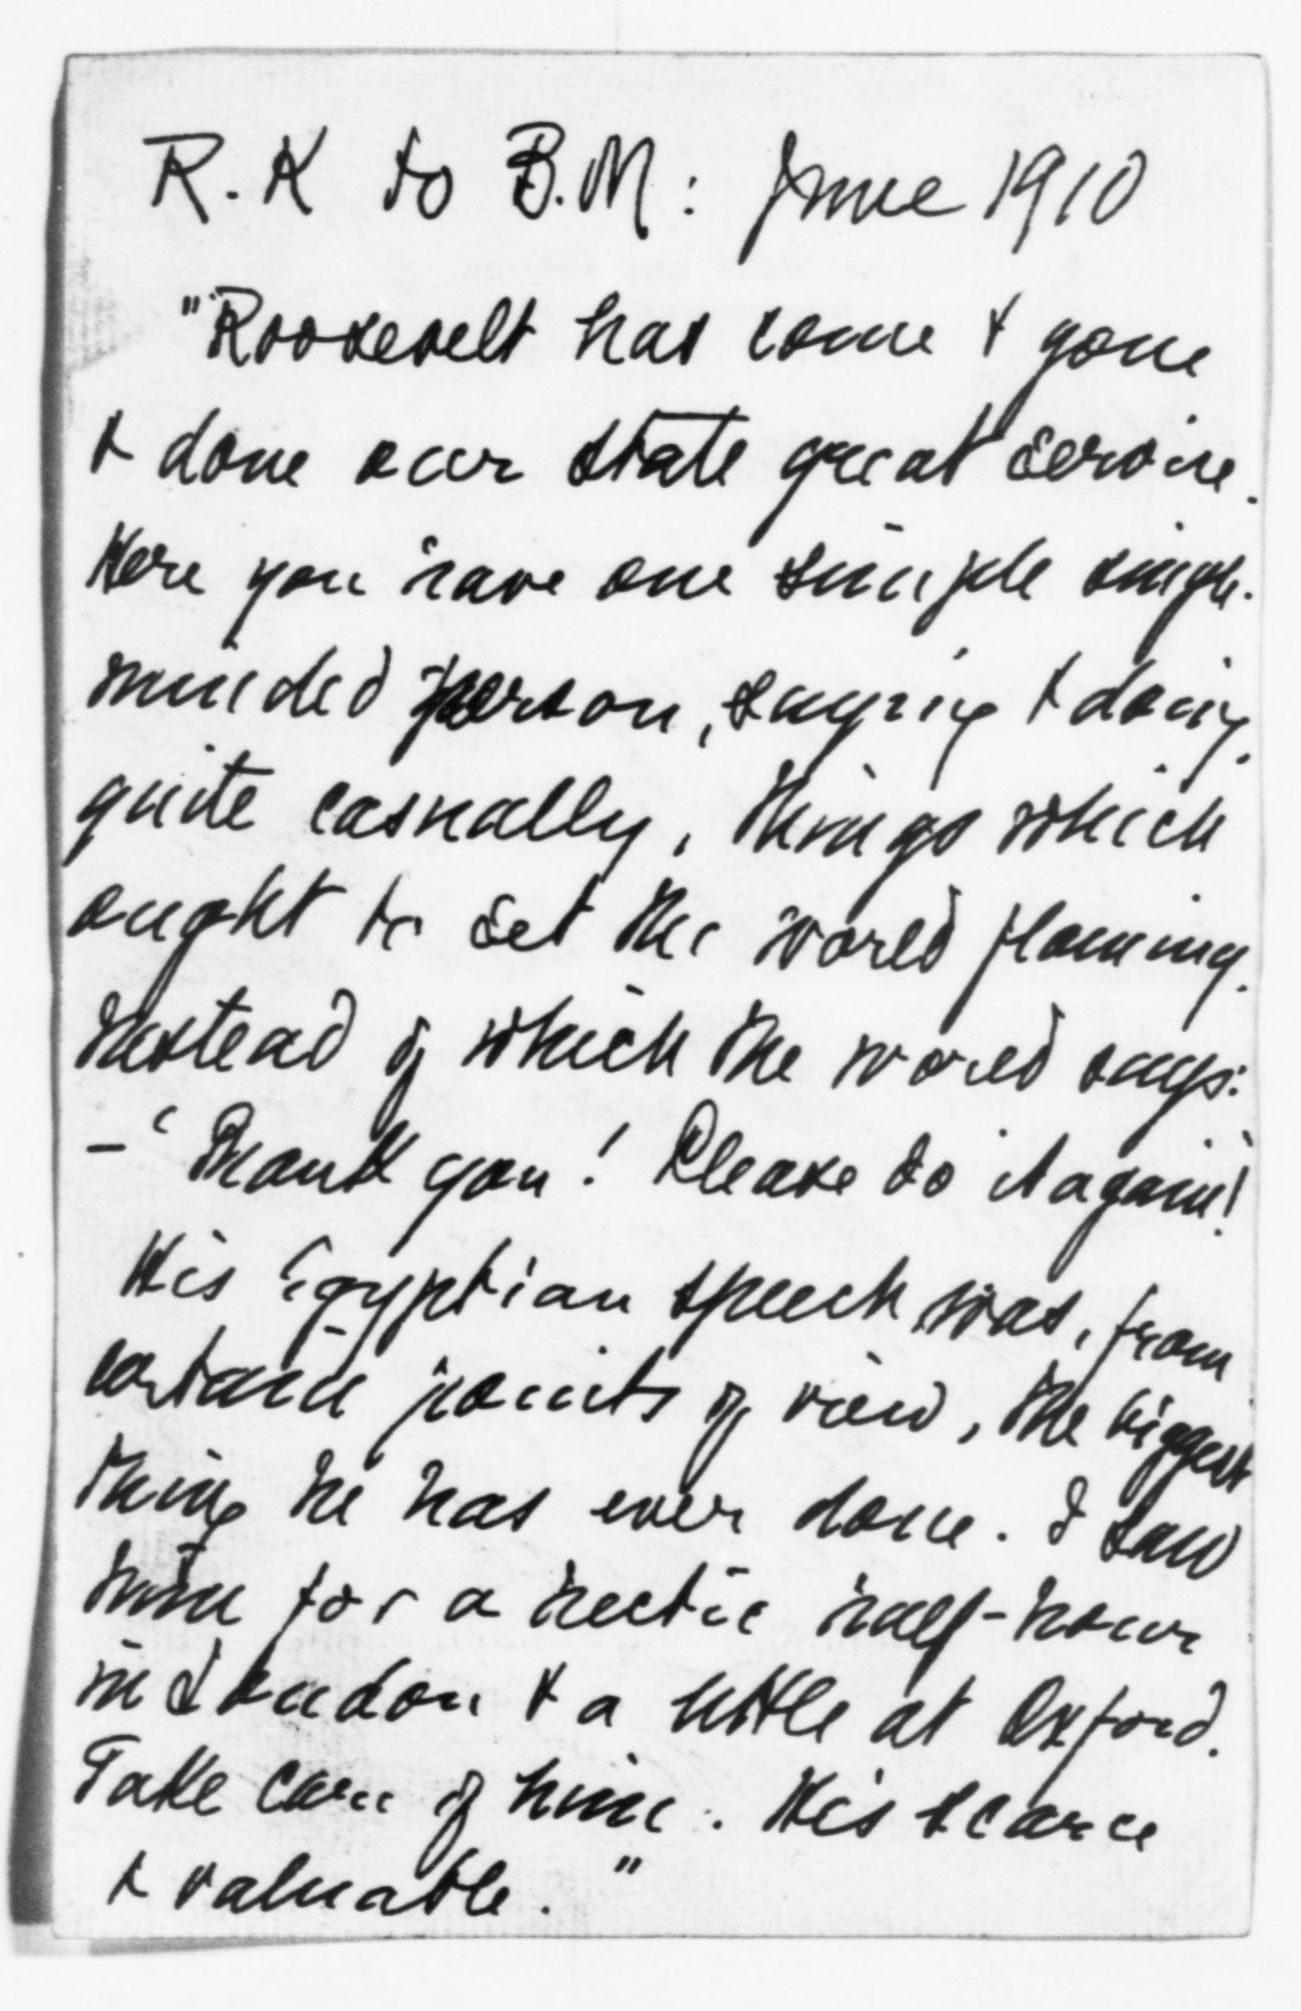 R. K to B.M: June 1910
"Roosevelt has come & gone
& done our state great service.
Here you have one simple single-
minded person, saying & doing,
quite casually, things which
ought to set the world flaming.
Instead of which the world says:
-'Thank you! Please do it again!'
His Egyptian speech was, from
certain points of view, the biggest
thing he has ever done. I saw
him for a hectic half-hour
in London & a little at Oxford.
Take care of him. His scarce
& valuable."